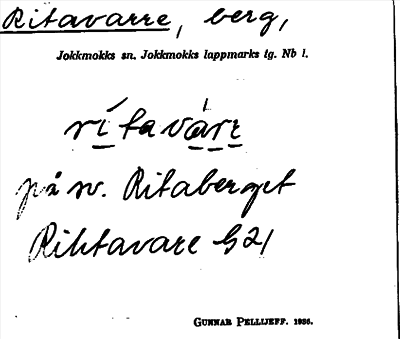 Ritavarre, berg,
Jokkmokks sn. Jokkmokks lappmarks tg. Nb l.
rí tavàrε
på sv. Ritaberget
Rihtavare G21
GUNNAR PELLIJEFF. 1936.